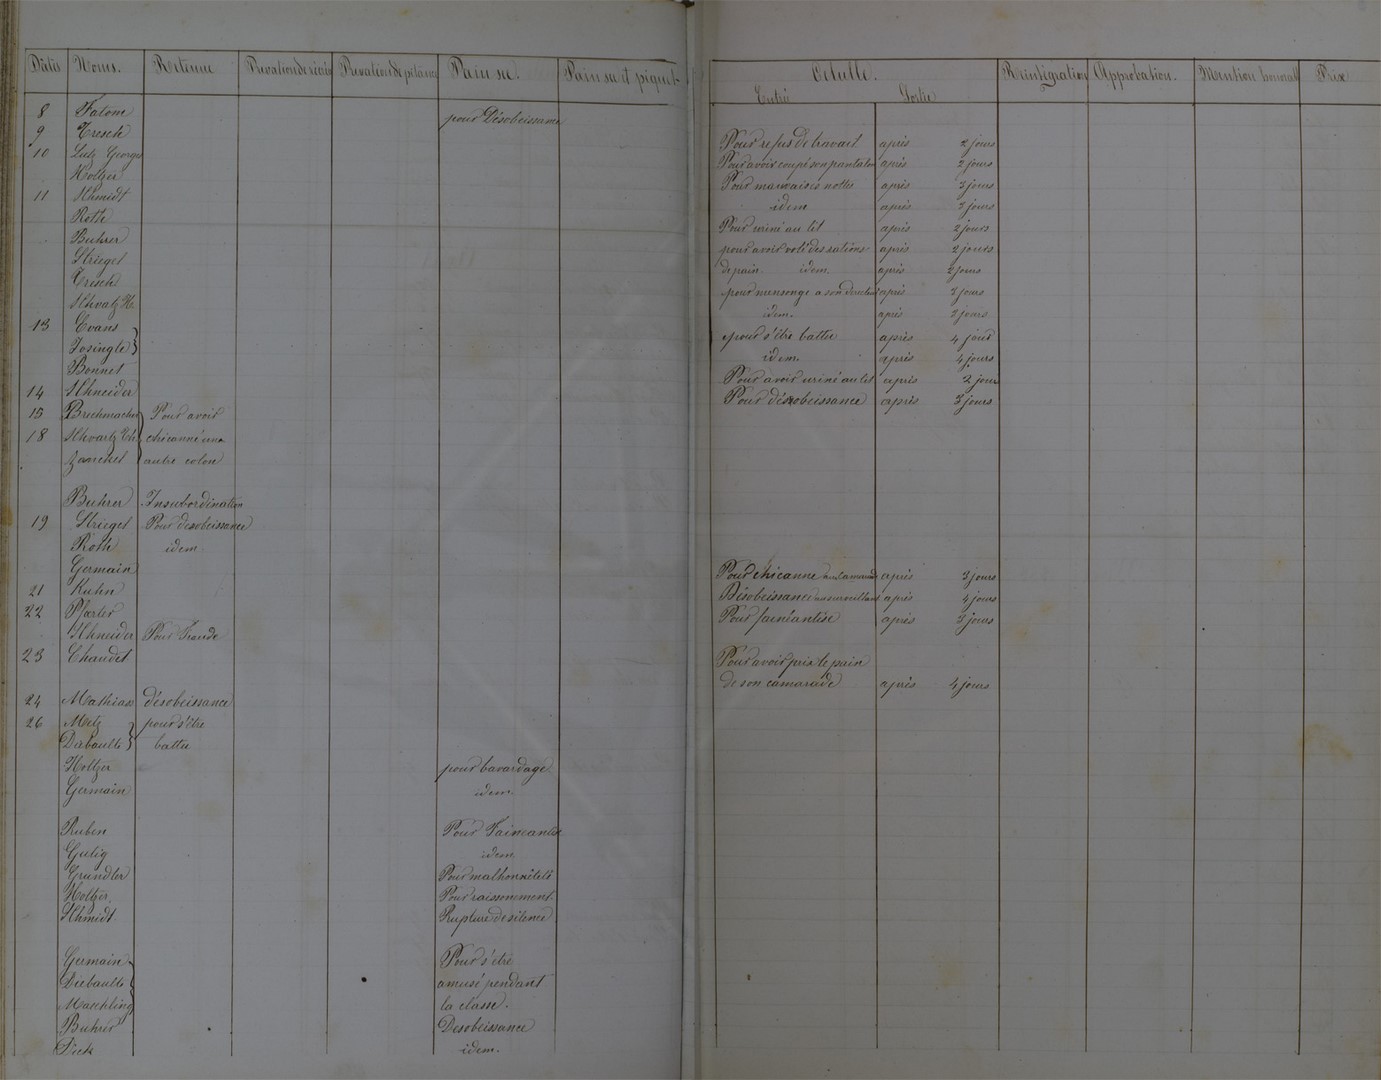 Dates Noms. Retenue Privation de récré Privation de pitance Pain sec. Pain sec et piquet Cellule. Réintégration Approbation. Mention honorabl Prix
Entrée Sortie
8 Fatome pour Désobeissance
9 Tresch Pour refus de travail après 2 jours
10 Lutz George Pour avoir coupé son pantalon après 2 jours
Holtzer Pour mauvaises nottes après 3 jours
11 Schmidt idem après 3 jours
Roth Pour uriné au lit après 2 jours
Buhrer pour avoir volé des rations après 2 jours
Krieget de pain idem. après 2 jours
Tresch pour mensonge a son après 3 jours
Schvatz H. idem. après 3 jours
13 Evans pour s'être battu après 4 jour
Josingle idem. après 4 jours
Bonnet Pour avoir uriné au lit après 2 jour
14 Schneider Pour désobeissance après 3 jours
15 Bruchmacher Pour avoir
18 Schvartz Th chicanné un
autre colon
Buhrer Insubordination
19 Krieget Pour desobeissance
Roth idem
Germain Pour chicanne camarade après 3 jours
21 Kuhn Désobeissance au surveillant après 4 jours
22 Pfarter Pour fainéantise après 3 jours
Schneider Pour Fraude
23 Chaudet Pour avoir pris le pain
de son camarade après 4 jours
24 Mathias désobeissance
26 Metz pour s'être
Diebault battu
Holtzer pour bavardage
Germain idem.
Ruben Pour Faineantise
Gulig idem
Grundler Pour malhonnêteté
Holtzer Pour raisonnement
Schmidt Rupture de silence
Germain Pour s'etre
Diebault amusé pendant
Maechling la classe.
Buhrer Desobeissance
Dick idem.